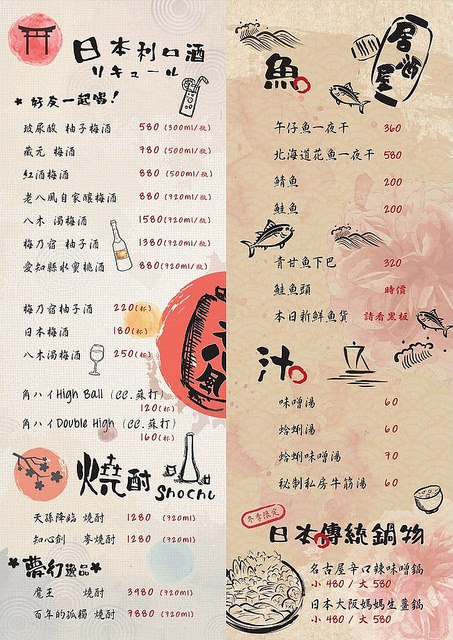 日本利口酒
リキュール
好友一起喝!
玻尿酸 柚子梅酒 580 (300ml/瓶)
藏元 梅酒 780 (500ml/瓶)
紅酒梅酒 880 (500ml/瓶)
老八風自家釀梅酒 880 (720ml/瓶)
八木 濁梅酒 1580 (720ml/瓶)
梅乃宿 柚子酒 1380 (720ml/瓶)
愛知縣水蜜桃酒 880 (720ml/瓶)
梅乃宿柚子酒 220 (杯)
日本梅酒 180 (杯)
八木濁梅酒 250 (杯)
角ハイHigh Ball (cc.蘇打)
120 (杯)
角ハイDouble High (cc.蘇打)
160 (杯)
八風
燒酎
Shochu
天孫降臨 燒酎 1280 (720ml)
知心劍 麥燒酎 1280 (720ml)
夢幻逸品
魔王 燒酎 3980 (720ml)
百年的孤獨 燒酎 7880 (720ml)
居酒屋
魚
午仔魚一夜干 360
北海道花魚一夜干 580
鯖魚 200
鮭魚 200
青甘魚下巴 320
鮭魚頭 時價
本日新鮮魚貨 請看黑板
汁
味噌湯 60
蛤蜊湯 60
蛤蜊味噌湯 70
秘制私房牛筋湯 60
冬季限定
日本傳統鍋物
名古屋辛口辣味噌鍋
小 480 / 大 580
日本大阪媽媽生薑鍋
小 480 / 大 580